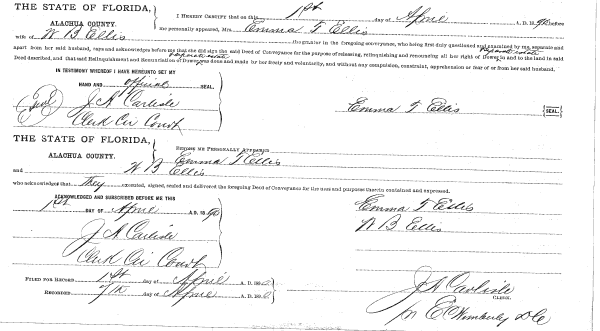 THE STATE OF FLORIDA,
ALACHUA COUNTY.
I HEREBY CERTIFY that on this 1st day of April A. D. 1890 before
me personally appeared, Mrs. Emma T Ellis
wife of W B Ellis the grantor in the foregoing conveyance, who being first duly questioned and examined by me, separate and
apart from her said husband, says and acknowledges before me that she did sign the said Deed of Conveyance for the purpose of releasing, relinquishing and renouncing all her right of Dower in and to the land in said
Deed described, and that said Relinquishment and Renunciation of Dower was done and made by her freely and voluntarily, and without any compulsion, constraint, apprehension or fear of or from her said husband.
IN TESTIMONY WHEREOF I HAVE HEREUNTO SET MY
HAND AND official SEAL.
(Seal) J. A Carlisle
Clerk Cir Court
Emma T Ellis (SEAL.)
THE STATE OF FLORIDA,
ALACHUA COUNTY.
BEFORE ME PERSONALLY APPEARED
Emma T Ellis
and W B Ellis
who acknowledges that they executed, signed, sealed and delivered the foregoing Deed of Conveyance for the uses and purposes therein contained and expressed.
ACKNOWLEDGED AND SUBSCRIBED BEFORE ME THIS
1st DAY OF April A. D. 1890
J A Carlisle
Clerk Cir Court
Emma T Ellis
W B Ellis
FILED FOR RECORD 1st day of April A. D. 
RECORDED 7th day of April A. D. 
J A Carlisle
CLERK.
E Wimberly D C